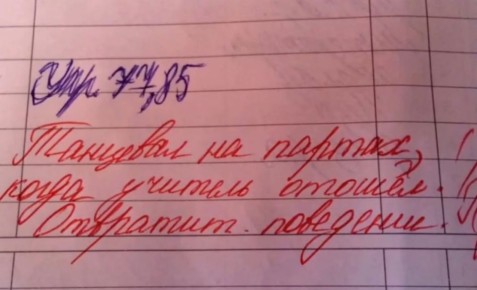 Упр. 77,85
Танцевал на партах, !
когда учитель отошёл. !
Отвратит. поведении. !